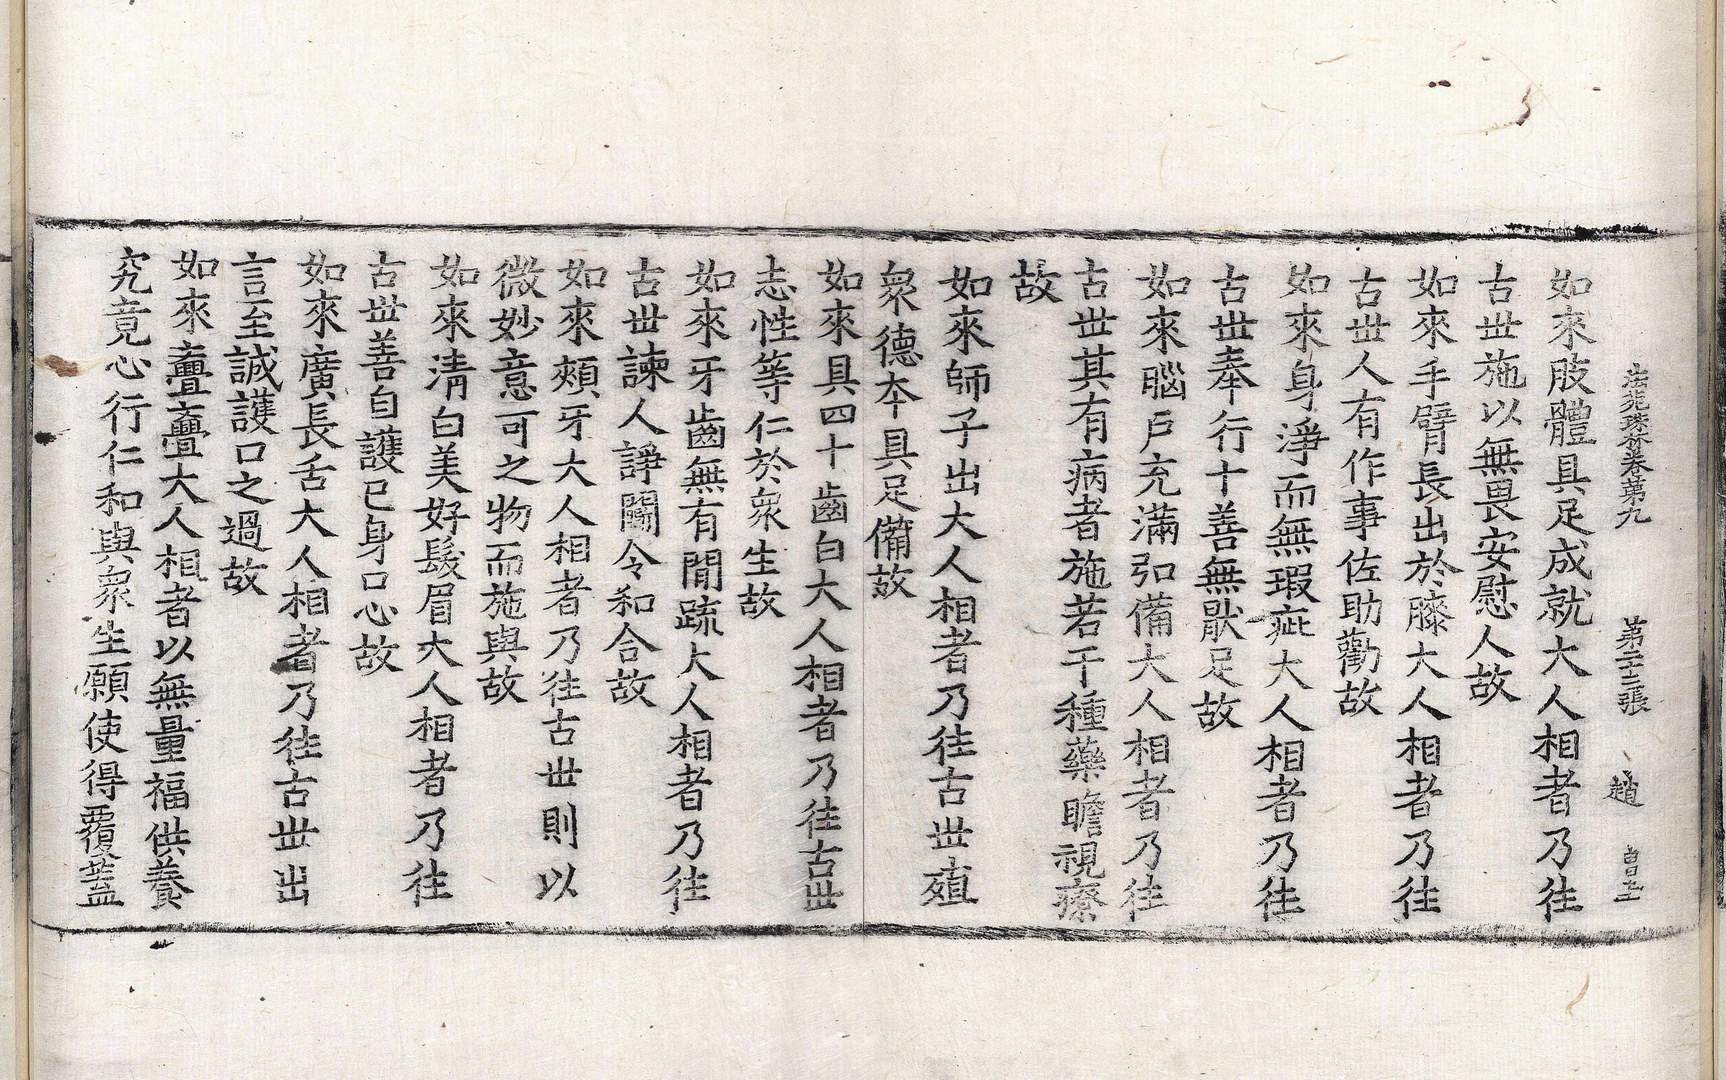 法苑珠林卷第九　第二十三張　趙
如來肢體具足成就大人相者乃往
古世施以無畏安慰人故
如來手臂長出於膝大人相者乃往
古世人有作事佐助勸故
如來身淨而無瑕疵大人相者乃往
古世奉行十善無猒足故
如來腦戶充滿弘備大人相者乃往
古世其有病者施若干種藥瞻視療
故
如來師子出大人相者乃往古世殖
衆德本具足備故
如來具四十齒白大人相者乃往古世
志性等仁於衆生故
如來牙齒無有閒疏大人相者乃往
古世諫人諍鬪令和合故
如來頰牙大人相者乃往古世則以
微妙意可之物而施與故
如來清白美好髮眉大人相者乃往
古世善自護已身口心故
如來廣長舌大人相者乃往古世出
言至誠護口之過故
如來亹亹大人相者以無量福供養
究竟心行仁和與衆生願使得覆蓋